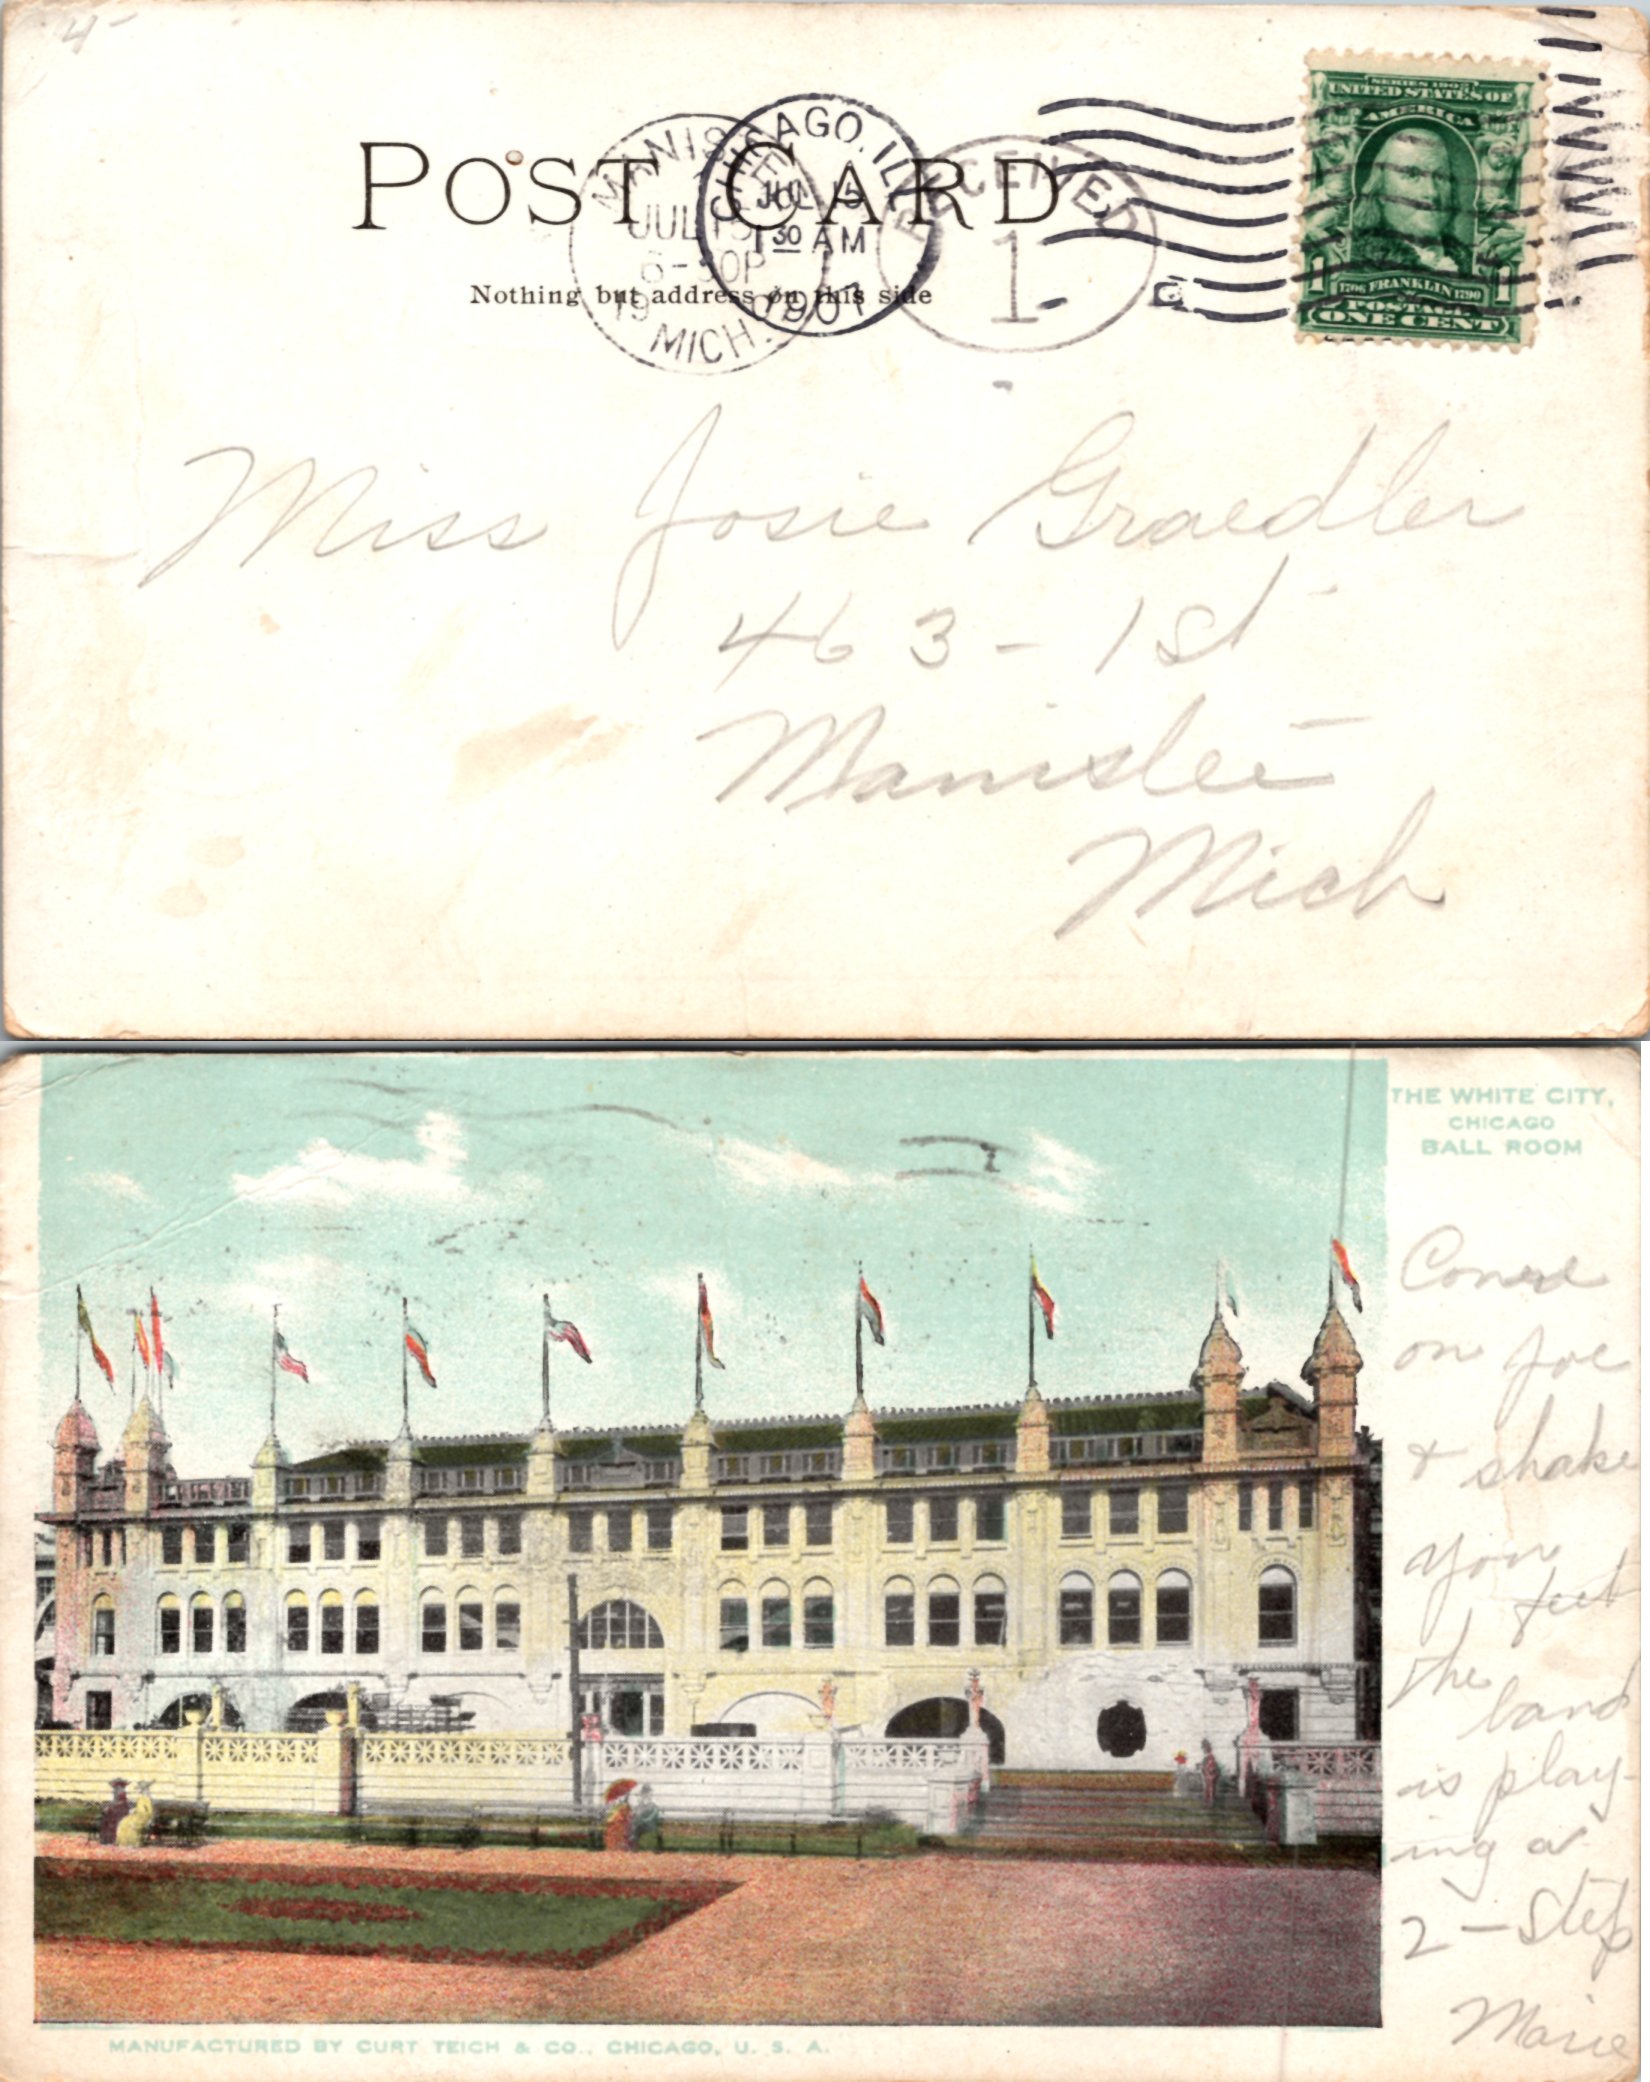 4-
SERIES 1902
UNITED STATES OF
AMERICA
1 1706 FRANKLIN 1790 1
POSTAGE
ONE CENT
POST CARD
Nothing but address on this side
MANISTEE
JUL 15
6-30P
19
MICH.
CHICAGO, ILL.
JUL 15
1 30 AM
1907
RECEIVED
1
Miss Josie Graedler
463 - 1st
Manistee
Mich
THE WHITE CITY,
CHICAGO
BALL ROOM
Come
on Joe
+ shake
your
feet
the
band
is play-
ing a
2-Step
Marie
MANUFACTURED BY CURT TEICH & CO., CHICAGO, U. S. A.